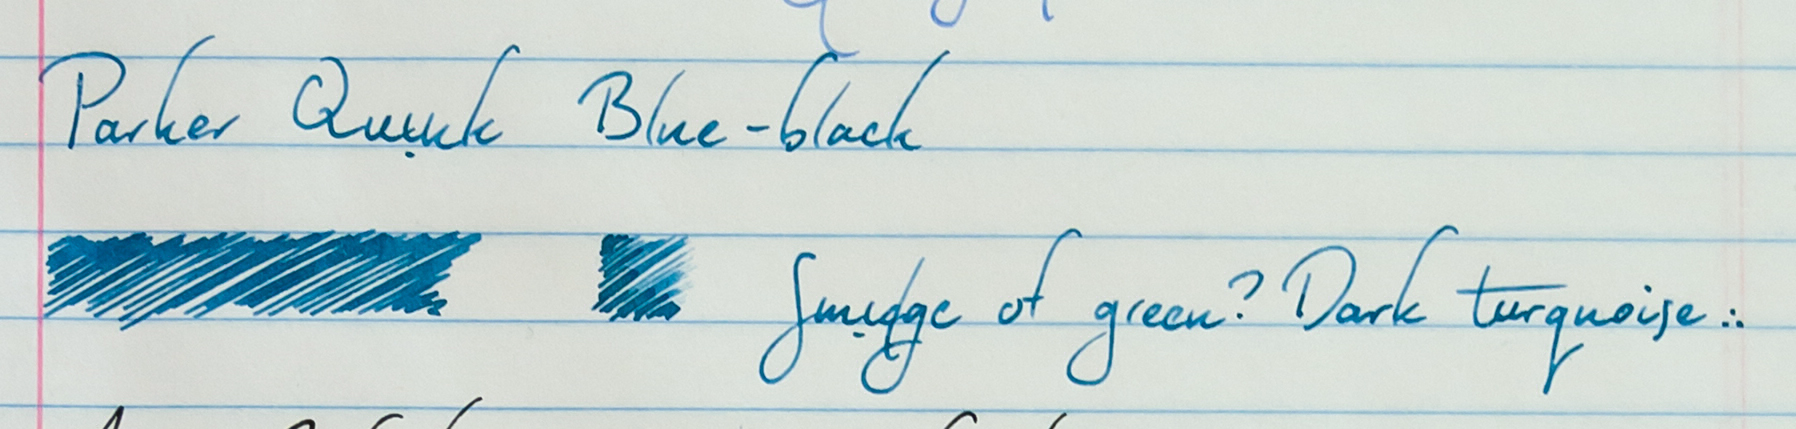 Parker Quink Blue-black
Smudge of green? Dark turquoise∴